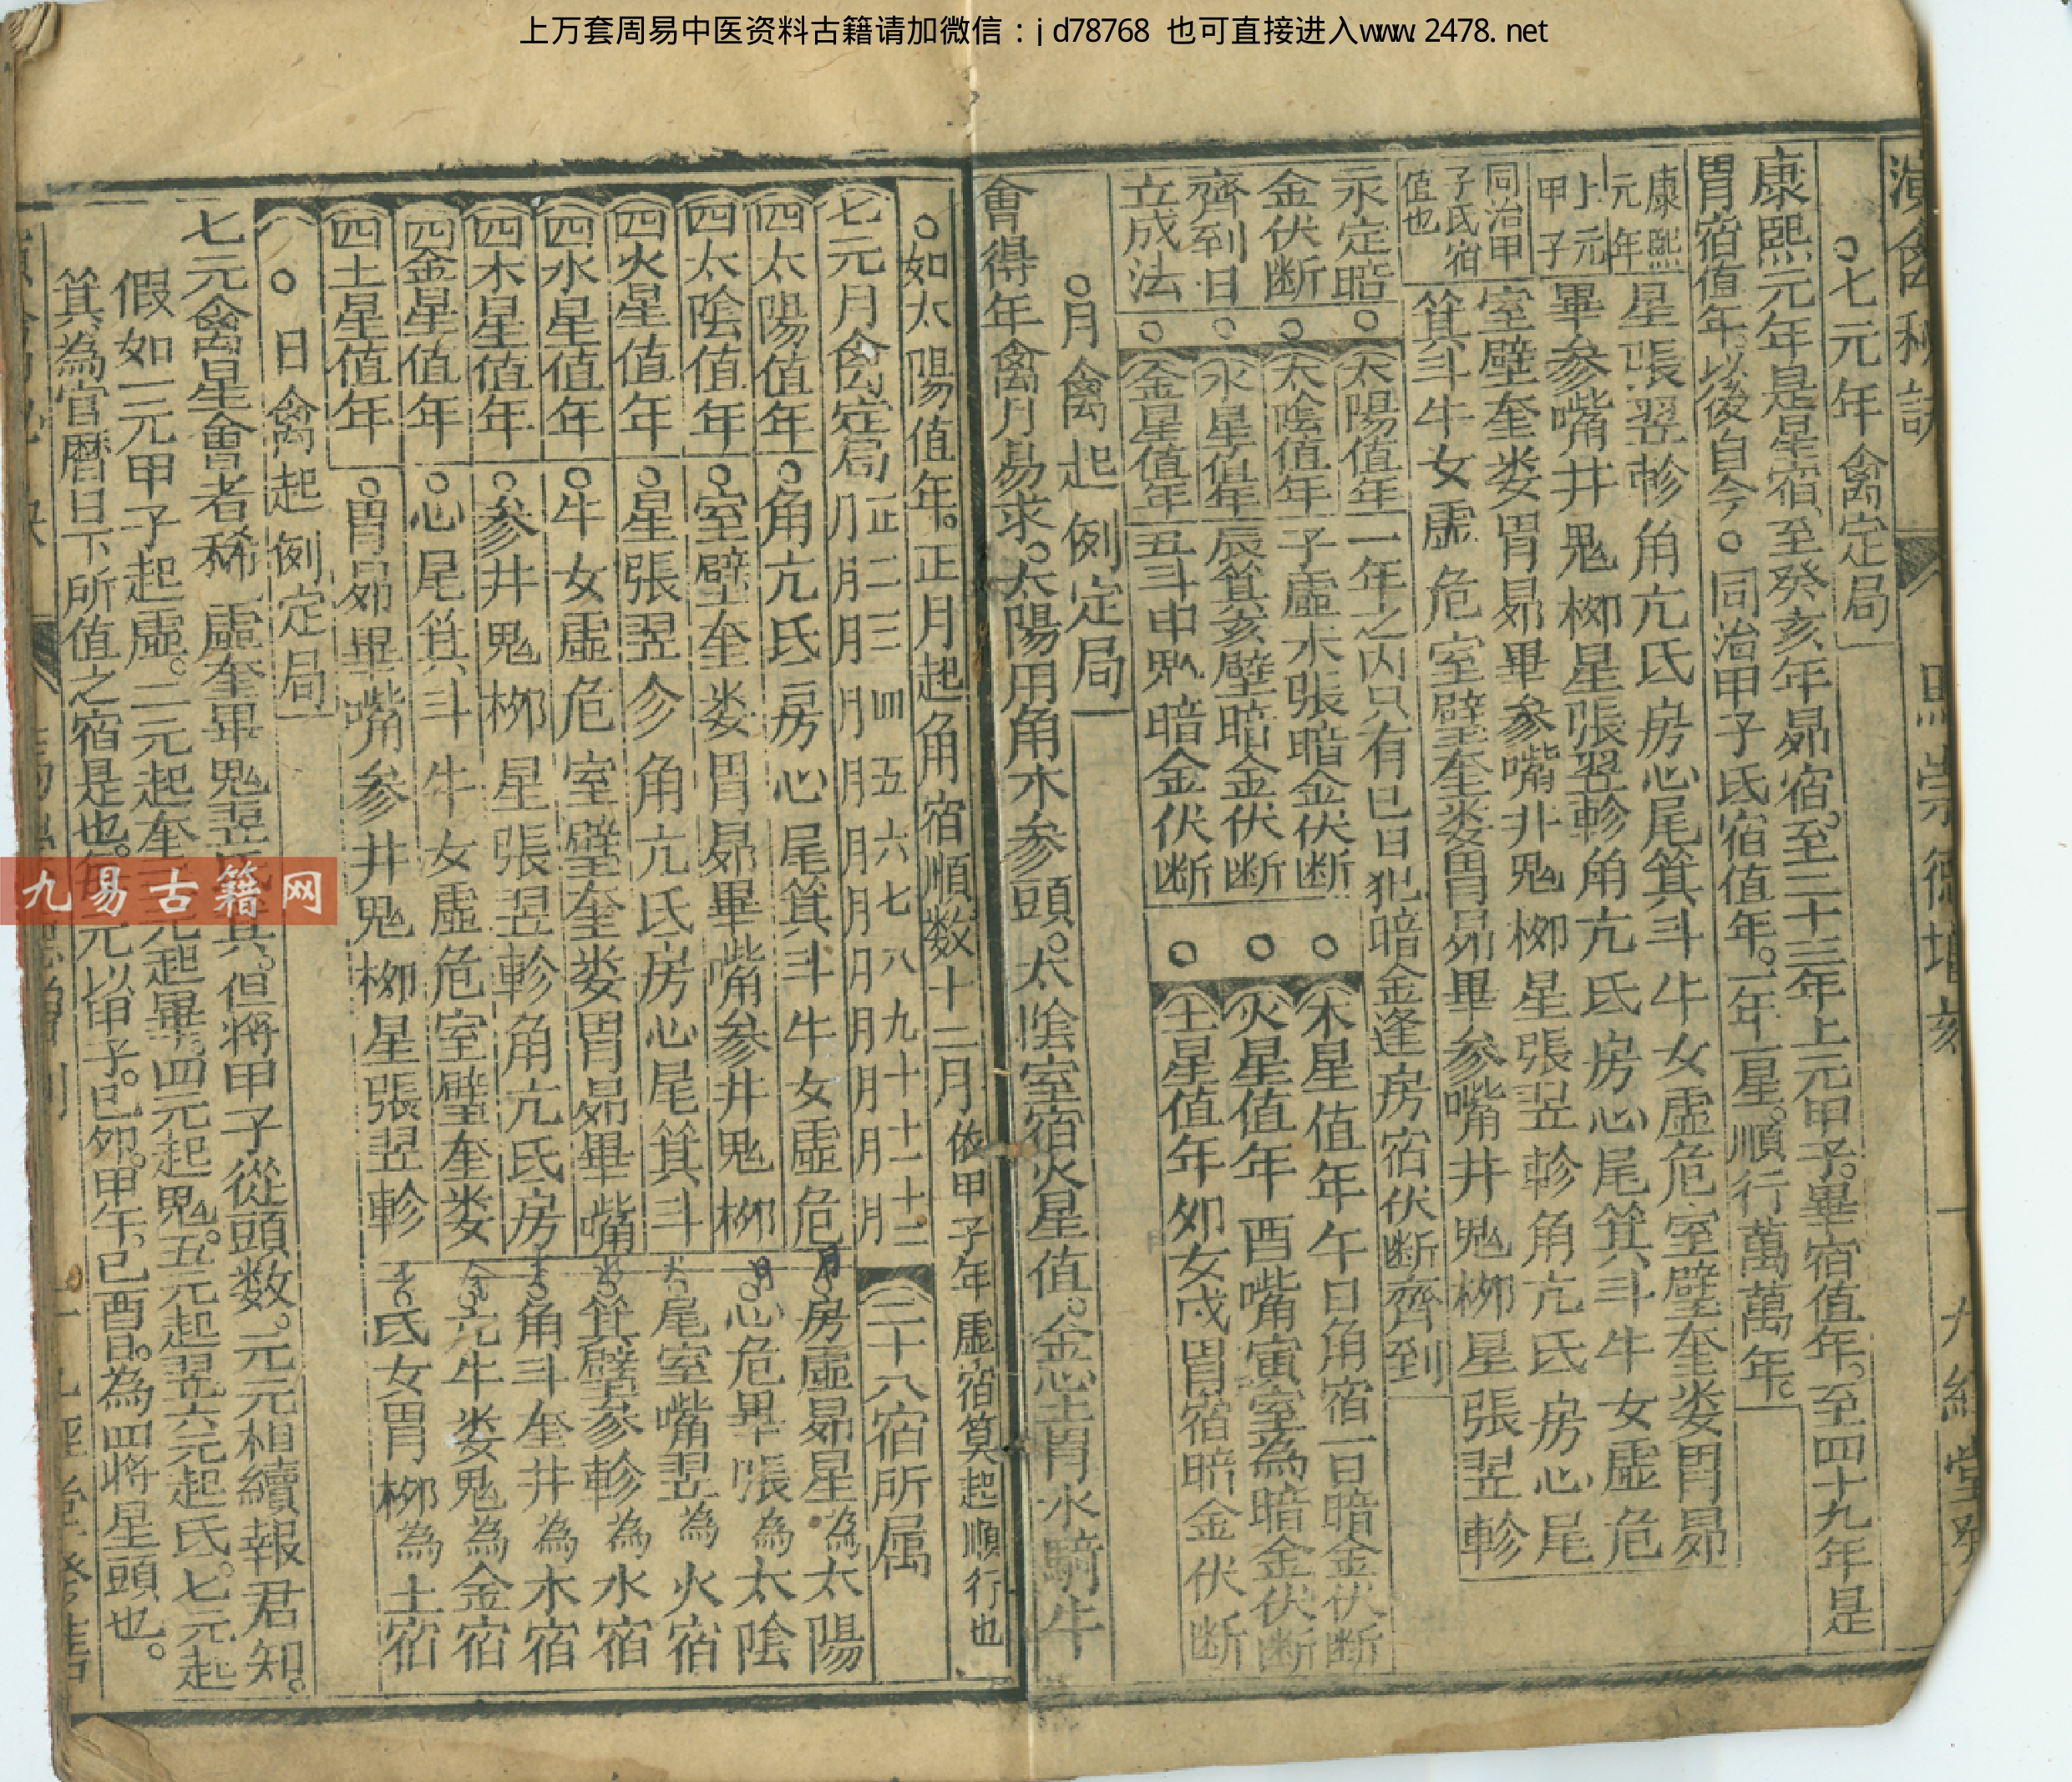 上万套周易中医资料古籍请加微信：jd78768 也可直接进入www.2478.net
演禽秘訣
九經堂
○七元年禽定局
康熙元年是星宿至癸亥年昴宿。至二十三年上元甲子。畢宿值年。至四十九年是
胃宿值年。以後自今○同治甲子氐宿值年。一年一星。順行萬萬年。
康熙元年
星張翌軫角亢氐房心尾箕斗牛女虛危室壁奎娄胃昴
上元甲子
畢参嘴井鬼柳星張翌軫角亢氐房心尾箕斗牛女虛危
同治甲子氐宿值也
室壁奎娄胃昴畢参嘴井鬼柳星張翌軫角亢氐房心尾
箕斗牛女虛危室壁奎娄胃昴畢参嘴井鬼柳星張翌軫
永定暗金伏断齊到日立成法
○太陽值年一年之内只有巳日犯暗金逢房宿伏断齊到
○太陰值年子虛水張暗金伏断
○水星值年辰箕亥壁暗金伏断
○金星值年丑斗申鬼暗金伏断
○木星值年午日角宿一日暗金伏断
○火星值年酉嘴寅室為暗金伏断
○土星值年夘女戌胃宿暗金伏断
○月禽起例定局
會得年禽月易求。太陽用角木参頭。太陰室宿火星值。金心土胃水騎牛
○如太陽值年。正月起角宿順数十二月依甲子年虛宿筭起順行也
七元月禽定局
正月二月三月四月五月六月七月八月九月十月十一月十二月
四太陽值年○角亢氐房心尾箕斗牛女虛危
四太陰值年○室壁奎娄胃昴畢嘴参井鬼柳
四火星值年○星張翌軫角亢氐房心尾箕斗
四水星值年○牛女虛危室壁奎娄胃昴畢嘴
四木星值年○参井鬼柳星張翌軫角亢氐房
四金星值年○心尾箕斗牛女虛危室壁奎娄
四土星值年○胃昴畢嘴参井鬼柳星張翌軫
二十八宿所属
房虛昴星為太陽
心危畢張為太陰
尾室嘴翌為火宿
箕壁参軫為水宿
角斗奎井為木宿
亢牛娄鬼為金宿
氐女胃柳為土宿
○日禽起例定局
七元禽星會者稀 虛奎畢鬼翌氐箕。但將甲子從頭数。元元相續報君知。
假如一元甲子起虛。二元起奎三元起畢。四元起鬼。五元起翌六元起氐。七元起
箕為官曆日下所值之宿是也。每元以甲子。己夘。甲午。己酉日。為四將星頭也。
九易古籍网